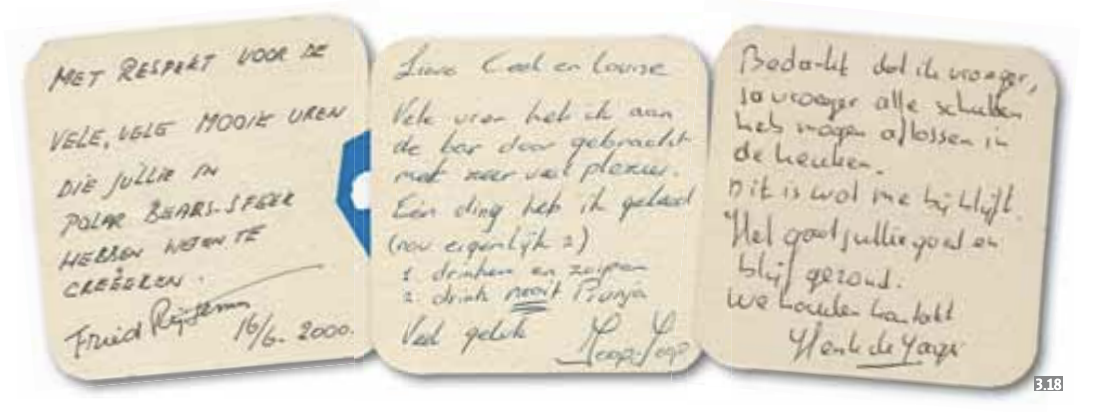 MET RESPEKT VOOR DE
VELE, VELE MOOIE UREN
DIE JULLIE IN
POLAR BEARS-SFEER
HEBBEN WETEN TE
CREËEREN.
Fried
16/6-2000.
Lieve Ceel en Louise
Vele uren heb ik aan
de bar door gebracht
met zeer veel plezier.
Eén ding heb ik geleerd
(nou eigenlijk 2)
1 drinken en zuipen
2 drink nooit
Veel geluk
Joop
Bedankt dat ik vroeger,
ja vroeger alle schulden
heb mogen aflossen in
de keuken.
Dit is wat me bij blijft.
Het gaat jullie goed en
blijf gezond.
We houden kontakt
Henk de Jager
3.18